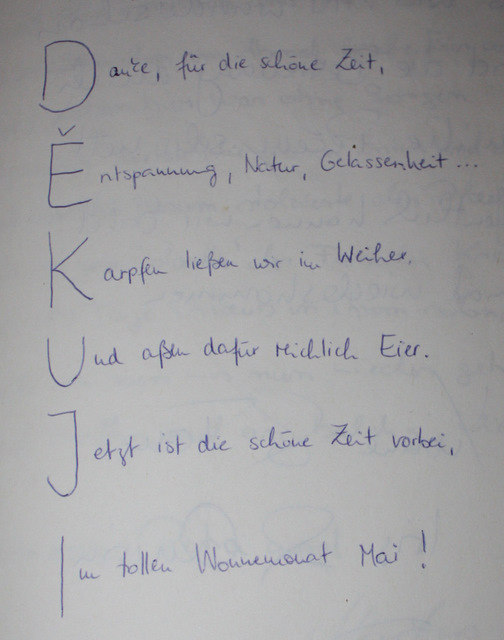 Danke, für die schöne Zeit,
Ěntspannung, Natur, Gelassenheit...
Karpfen ließen wir im Weiher,
Und aßen dafür reichlich Eier.
Jetzt ist die schöne Zeit vorbei,
Im tollen Wonnemonat Mai!